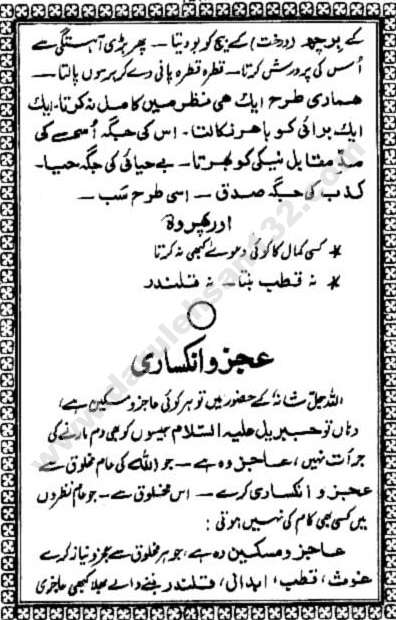 کے پرچھ (درخت) کے بیج کو بو دیتا — پھر بڑی آہستگی سے
اُس کی پرورش کرتا — قطرہ قطرہ پانی دے کر برسوں پالتا —
ھماری طرح ایک ھی منظر میں کامل نہ کرتا — ایک
ایک برائی کو باھر نکالتا — اس کی جگہ اُسی کے
مدّ مقابل نیکی کو بھرتا — بے حیائی کی جگہ حیا —
کذب کی جگہ صدق — اسی طرح سب —
اور پھر وہ
* کسی کمال کا کوئی دعویٰ کبھی نہ کرتا
* نہ قطب بنتا — نہ قلندر
عجز و انکساری
اللہ جلّ شانہٗ کے حضور میں تو ہر کوئی عاجز و مسکین ہے،
وہاں تو جبریل علیہ السّلام جیسوں کو بھی دم مارنے کی
جرأت نہیں، عاجز وہ ہے — جو اللہ کی عام مخلوق سے
عجز و انکساری کرے — اس مخلوق سے — جو عام نظروں
میں کسی بھی کام کی نہیں ہوتی :
عاجز و مسکین وہ ہے، جو ہر مخلوق سے عجز و نیاز کرے
غوث، قطب، ابدال، قلندر بننے والے بھلا کبھی عاجزی
www.darulehsan432.com